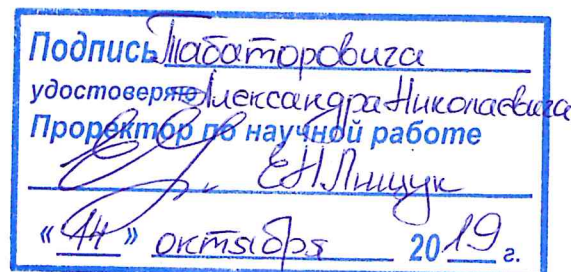 Подпись Табаторовича
удостоверяю Александра Николаевича
Проректор по научной работе
Е.Н.Лищук
«14» октября 2019 г.